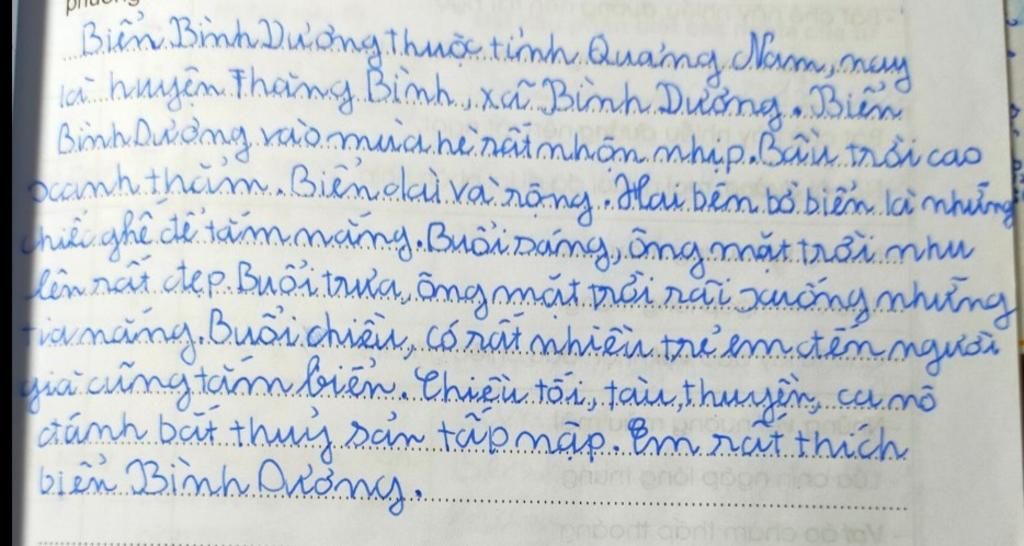 Biển Bình Dương thuộc tỉnh Quảng Nam, nay
là huyện Thăng Bình, xã Bình Dương. Biển
Bình Dương vào mùa hè rất nhộn nhịp. Bầu trời cao
xanh thẳm. Biển dài và rộng. Hai bên bờ biển là những
chiếc ghế để tắm nắng. Buổi sáng, ông mặt trời nhu
lên rất đẹp. Buổi trưa, ông mặt trời rãi xuống những
tia nắng. Buổi chiều, có rất nhiều trẻ em đến người
già cũng tắm biển. Chiều tối, tàu, thuyền, ca nô
đánh bắt thuỷ sản tấp nập. Em rất thích
biển Bình Dương.